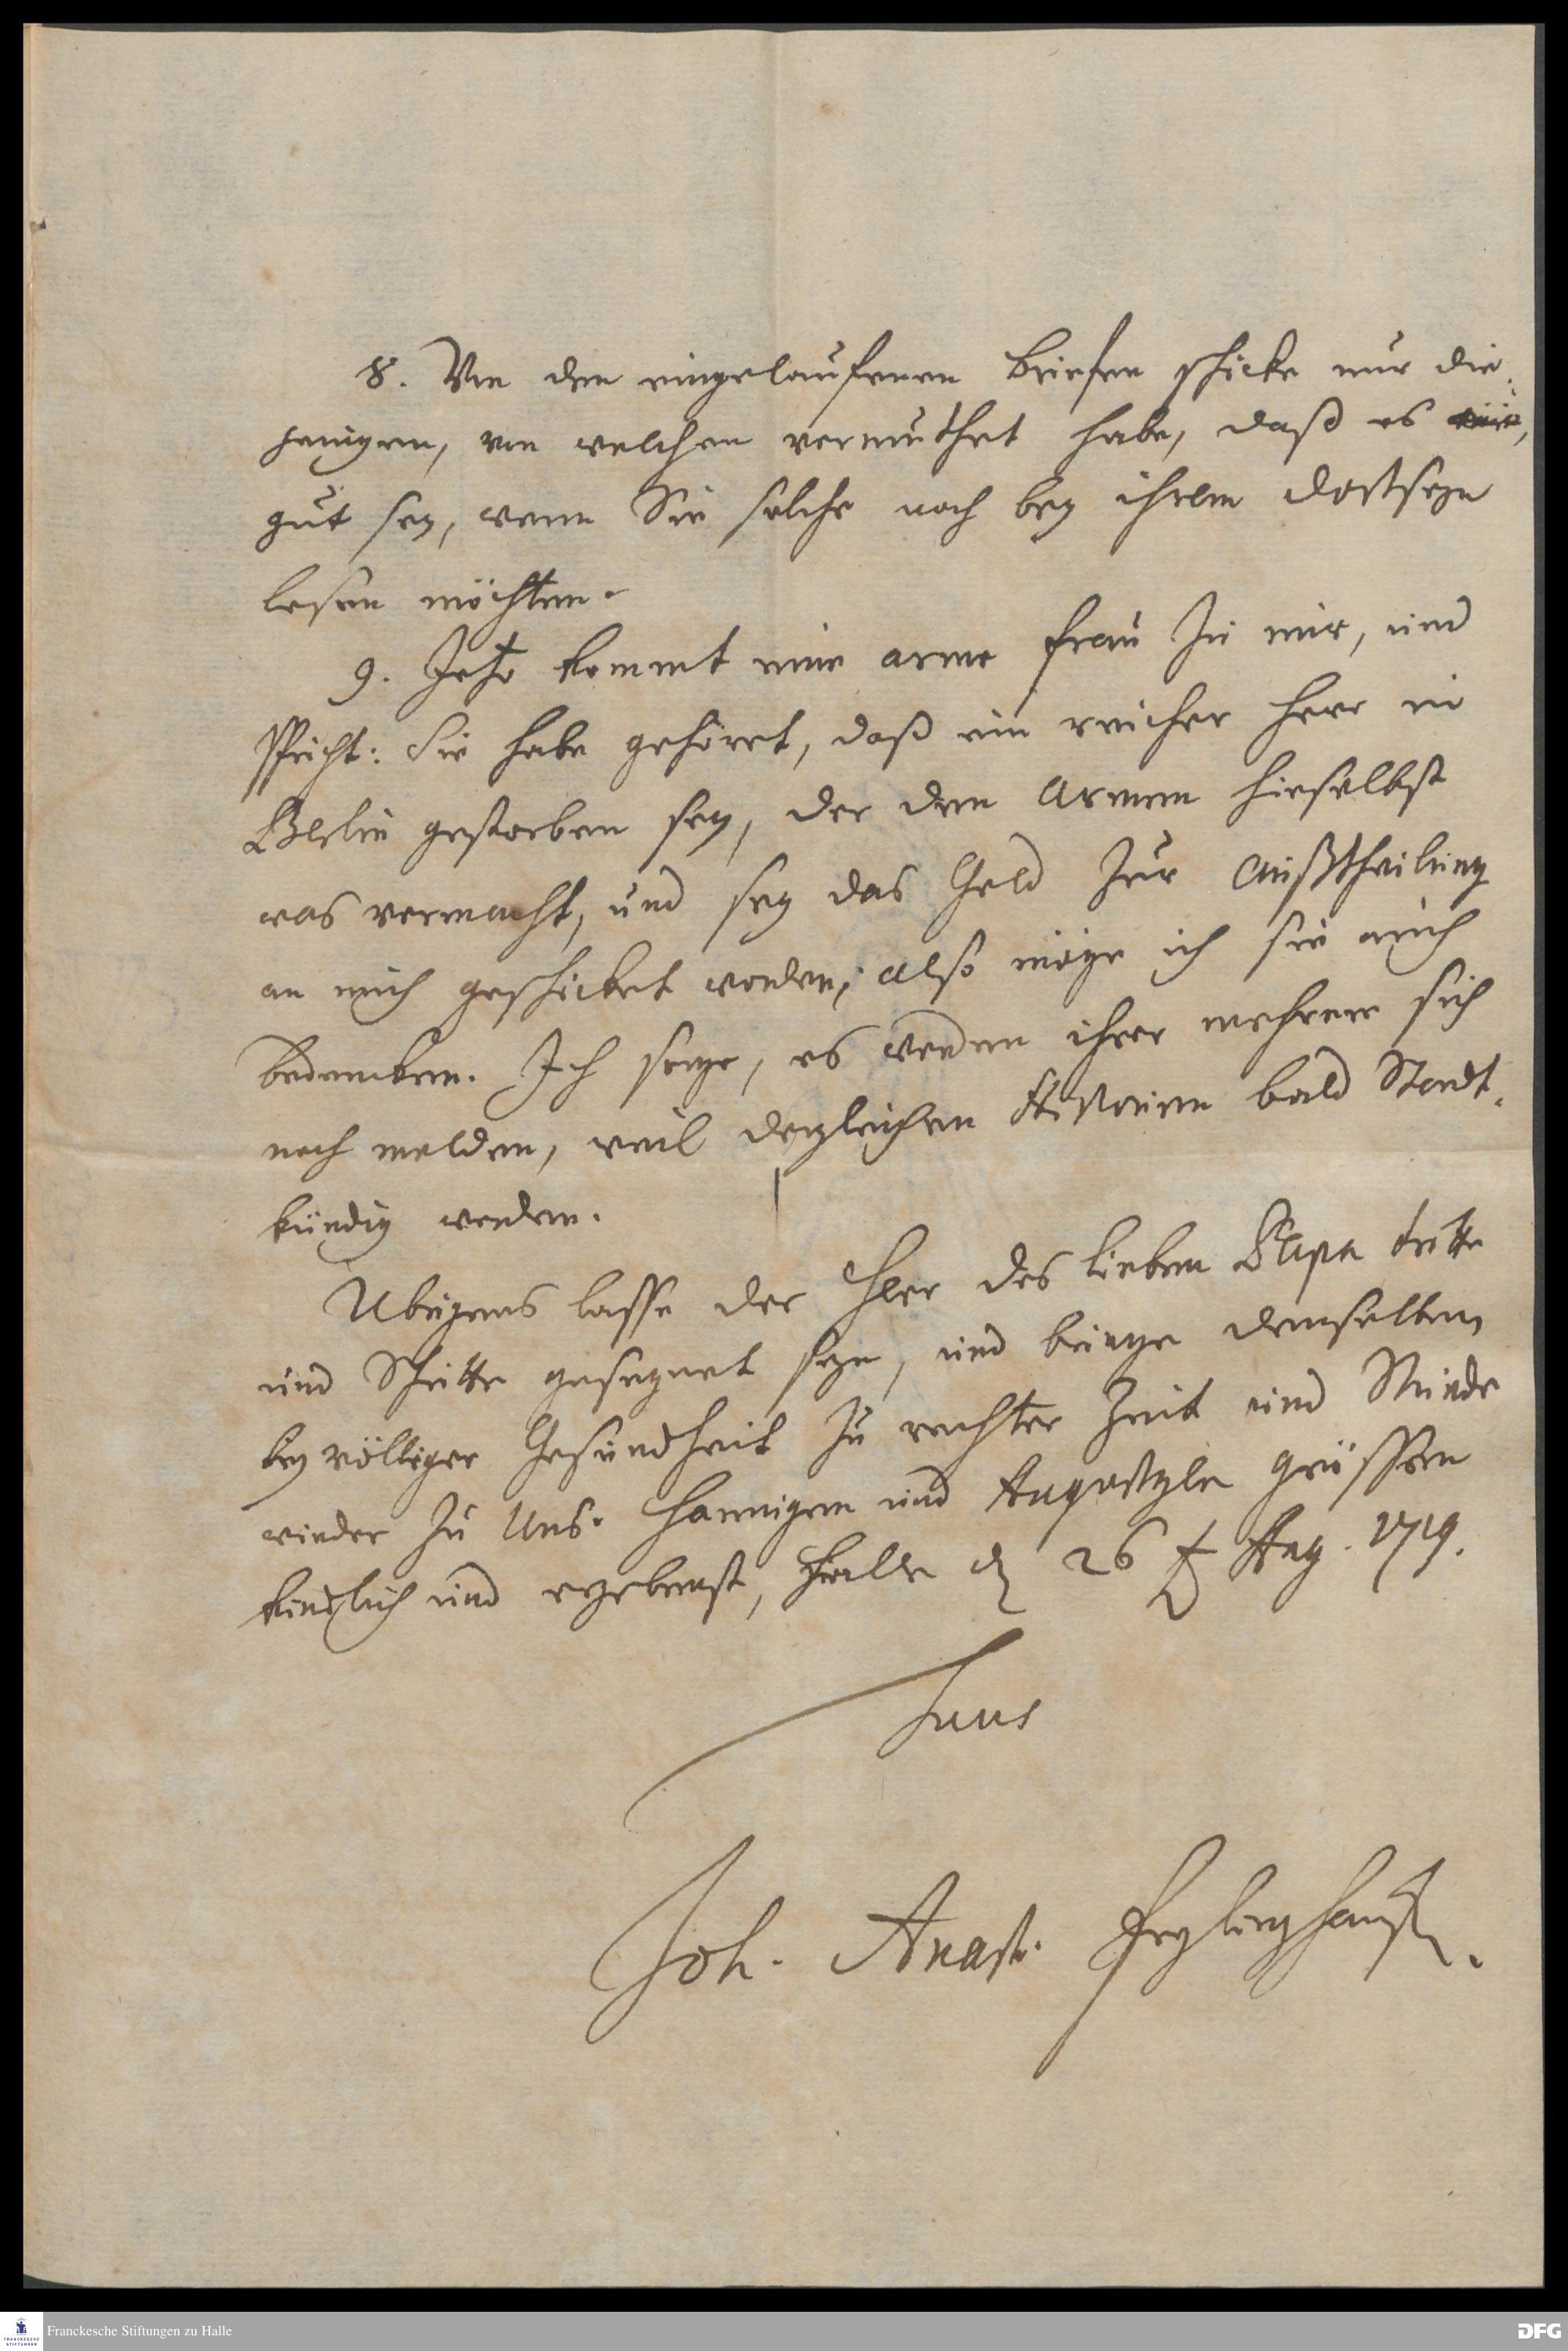 8. Von den eingelaufenen Briefen schicke nur die-
jenigen, von welchen vermuthet habe, daß es
gut sey, wenn Sie solche noch bey ihrem Dortseyn
lesen möchten.
9. Jetzo kommt eine arme Frau zu mir, und
spricht: Sie habe gehöret, daß ein reicher Herr in
Berlin gestorben sey, der den Armen hieselbst
was vermacht, und sey das Geld zur Außtheilung
an mich geschicket worden; also möge ich sie auch
bedencken. Ich sorge, es werden ihrer mehrere sich
noch melden, weil dergleichen Historien bald Stadt-
kündig werden.
Ubrigens lasse der Herr des lieben Papa tritte
und Schritte gesegnet seyn, und bringe denselben
bey völliger Gesundheit zu rechter Zeit und Stunde
wieder zu Uns. Hannigen und Augustgln grüssen
kindlich und ergebenst, Halle d 26 Aug. 1719.
Suus
Joh. Anast. Freylinghausen.
Franckesche Stiftungen zu Halle
FRANCKESCHE STIFTUNGEN
DFG